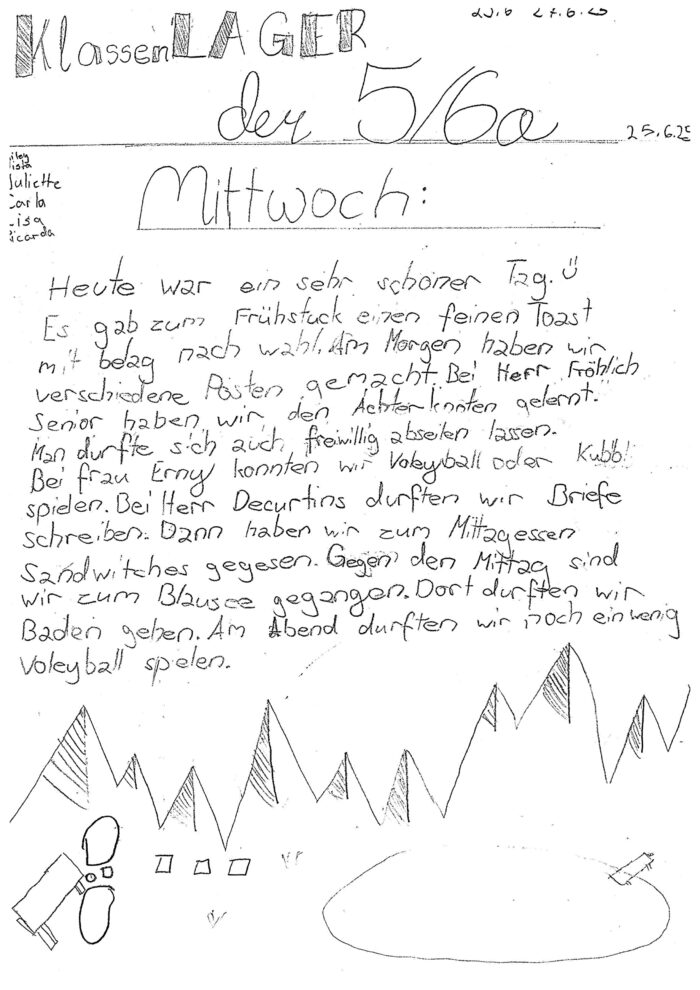 23.6 27.6.25
KlassenLAGER
der 5/6a
25.6.25
Juliette
Carla
Lisa
Ricarda
Mittwoch:
Heute war ein sehr schöner Tag.
Es gab zum Frühstuck einen feinen Toast
mit belag nach wahl. Am Morgen haben wir
verschiedene Posten gemacht. Bei Herr Fröhlich
Senior haben wir den Achterknoten gelernt.
Man durfte sich auch freiwillig abseilen lassen.
Bei frau Erny konnten wir Voleyball oder Kubb
spielen. Bei Herr Decurtins durften wir Briefe
schreiben. Dann haben wir zum Mittagessen
Sandwitches gegesen. Gegen den Mittag sind
wir zum Blausee gegangen. Dort durften wir
Baden gehen. Am Abend durften wir noch ein wenig
Voleyball spelen.